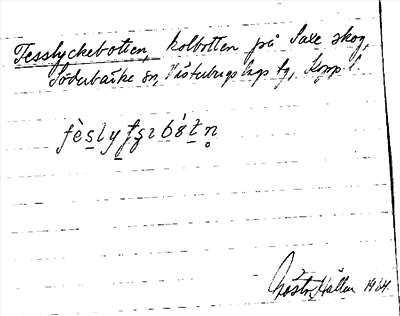 Tesslyckebotten, kolbotten på Saxe skog,
Söderbärke sn, Västerbergslags tg, Kopp. l.
fèslyf̣ṣıbʹ8tn̥
1934.